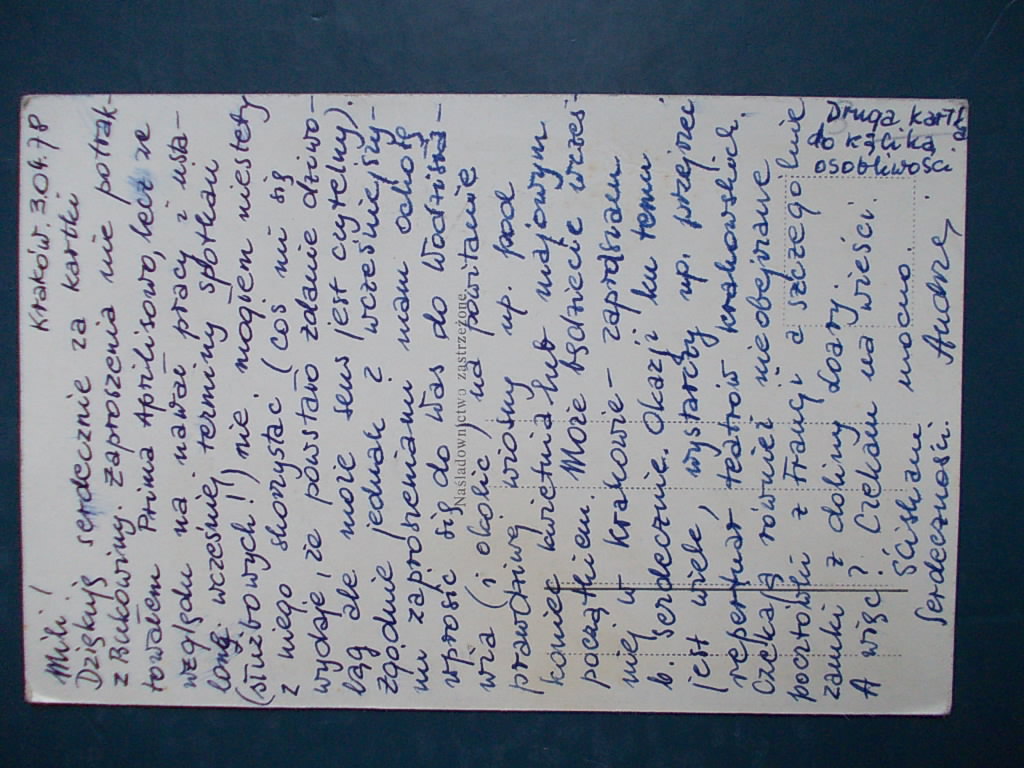 Kraków. 3.04.78
Mili!
Dziękuję serdecznie za kartki
z Bukowiny. Zaproszenia nie potrak-
towałem Prima Aprilisowo, lecz ze
względu na nawał pracy i usta-
loną wcześniej terminy spotkań
(służbowych!!) nie mogłem niestety
z niego skorzystać (coś mi się
wydaje, że powstało zdanie dziwo-
ląg ale może sens jest czytelny).
zgodnie jednak z wcześniejszy-
mi zaproszeniami mam ochotę
wprosić się do Was do Wodzisła-
wia (i okolic) na powitanie
prawdziwej wiosny np. pod
koniec kwietnia lub majowym
początkiem. Może będziecie wcześ-
niej w Krakowie - zapraszam
b. serdecznie. Okazji ku temu
jest wiele, wystarczy np. przejrzeć
repertuar teatrów krakowskich.
Czekają również nieobejrzane
pocztówki z Francji a szczególnie
zamki z doliny Loary.
A więc? Czekam na wieści.
Ściskam mocno.
Serdeczności. Andrzej
Druga kartka
do kącika
osobliwości.
Naśladownictwo zastrzeżone